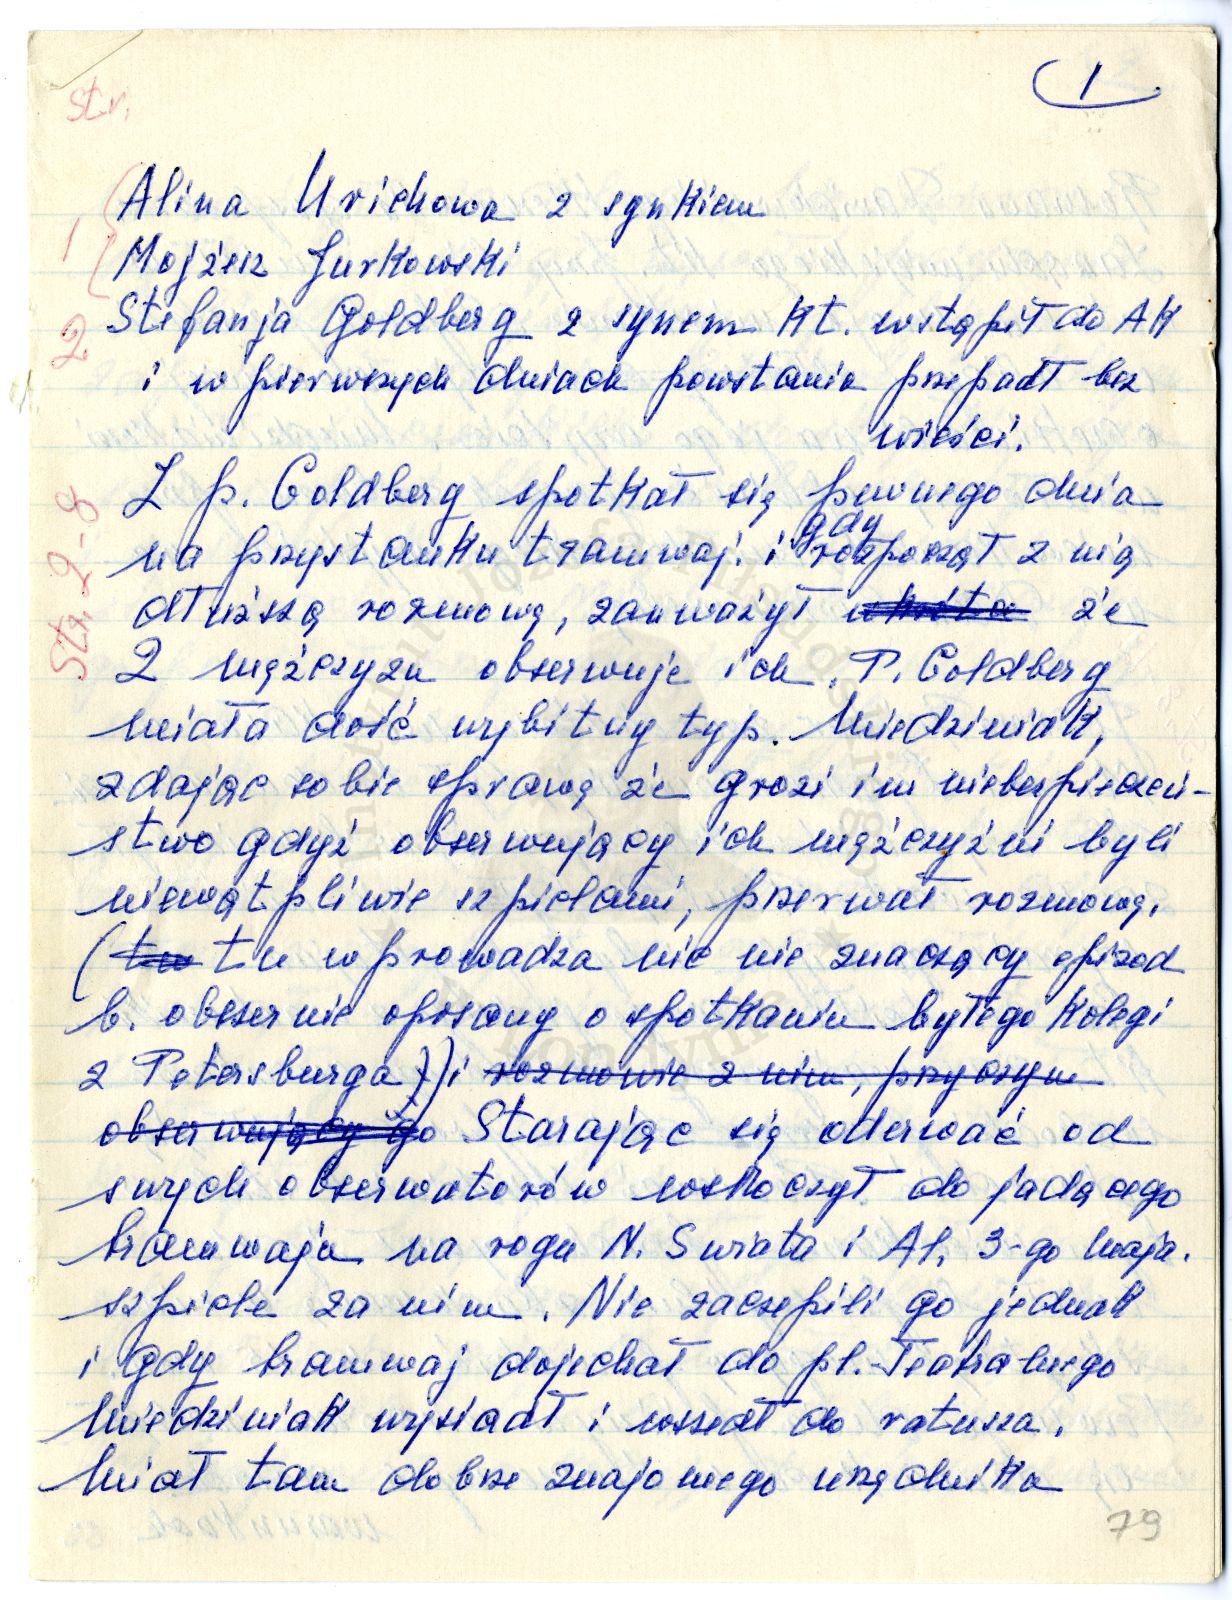 1
str.
Alina Urichowa z synkiem
1
Mojżesz Jurkowski
2
Stefanja Goldberg z synem kt. wstąpił do AK
i w pierwszych dniach powstania przepadł bez
wieści.
Str. 2-8
Z p. Goldberg spotkał się pewnego dnia
gdy
na przystanku tramwaj. i rozpoczął z nią
dłuższą rozmowę, zauważył że
2 mężczyzn obserwuje ich. P. Goldberg
miała dość wybitny typ. Miedzianik,
zdając sobie sprawę że grozi im niebezpieczeń-
stwo gdyż obserwujący ich mężczyźni byli
niewątpliwie szpiclami, przerwał rozmowę.
(tu tu wprowadza nic nie znaczący epizod
b. obszernie opisany o spotkaniu byłego kolegi
z Petersburga)) i rozmowie z nim, przyczym
obserwujący go Starając się oderwać od
swych obserwatorów wskoczył do jadącego
tramwaju na rogu N. Swiata i Al. 3-go Maja.
szpicle za nim. Nie zaczepili go jednak
i gdy tramwaj dojechał do pl. Teatralnego
Miedzianik wysiadł i wszedł do ratusza.
Miał tam dobrze znajomego urzędnika
79
Instytut Józefa Piłsudskiego
Londyn